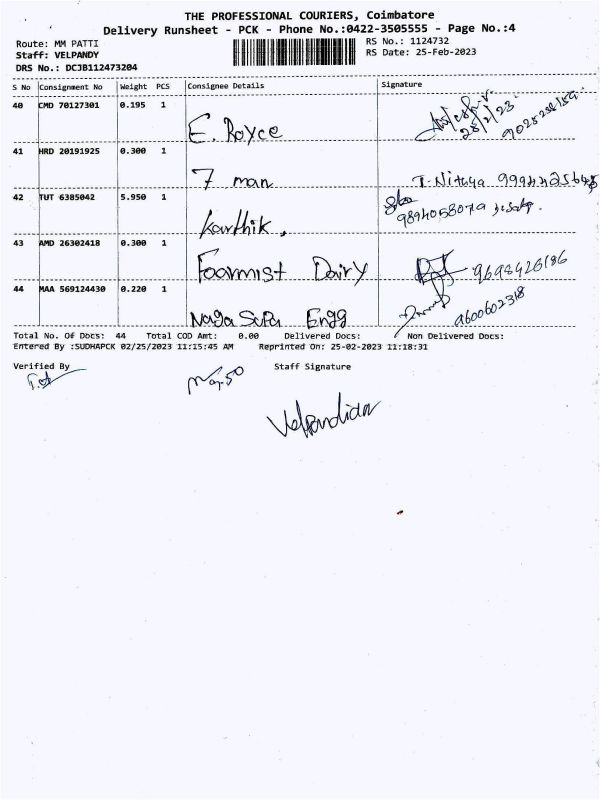 THE PROFESSIONAL COURIERS, Coimbatore
Delivery Runsheet - PCK - Phone No.:0422-3505555 - Page No.:4
Route: MM PATTI
RS No.: 1124732
Staff: VELPANDY
RS Date: 25-Feb-2023
DRS No.: DCJB112473204
S No Consignment No Weight PCS Consignee Details Signature
40 CMD 70127301 0.195 1
E. Royce
25/2/23
41 HRD 20191925 0.300 1
7 man
T. Nithya
42 TUT 6385042 5.950 1
Karthik,
9894058079
43 AMD 26302418 0.300 1
Foormist Dairy
9698426186
44 MAA 569124430 0.220 1
Naga Supa Engg
9600602318
Total No. Of Docs: 44 Total COD Amt: 0.00 Delivered Docs: Non Delivered Docs:
Entered By :SUDHAPCK 02/25/2023 11:15:45 AM Reprinted On: 25-02-2023 11:18:31
Verified By Staff Signature
Velpandian